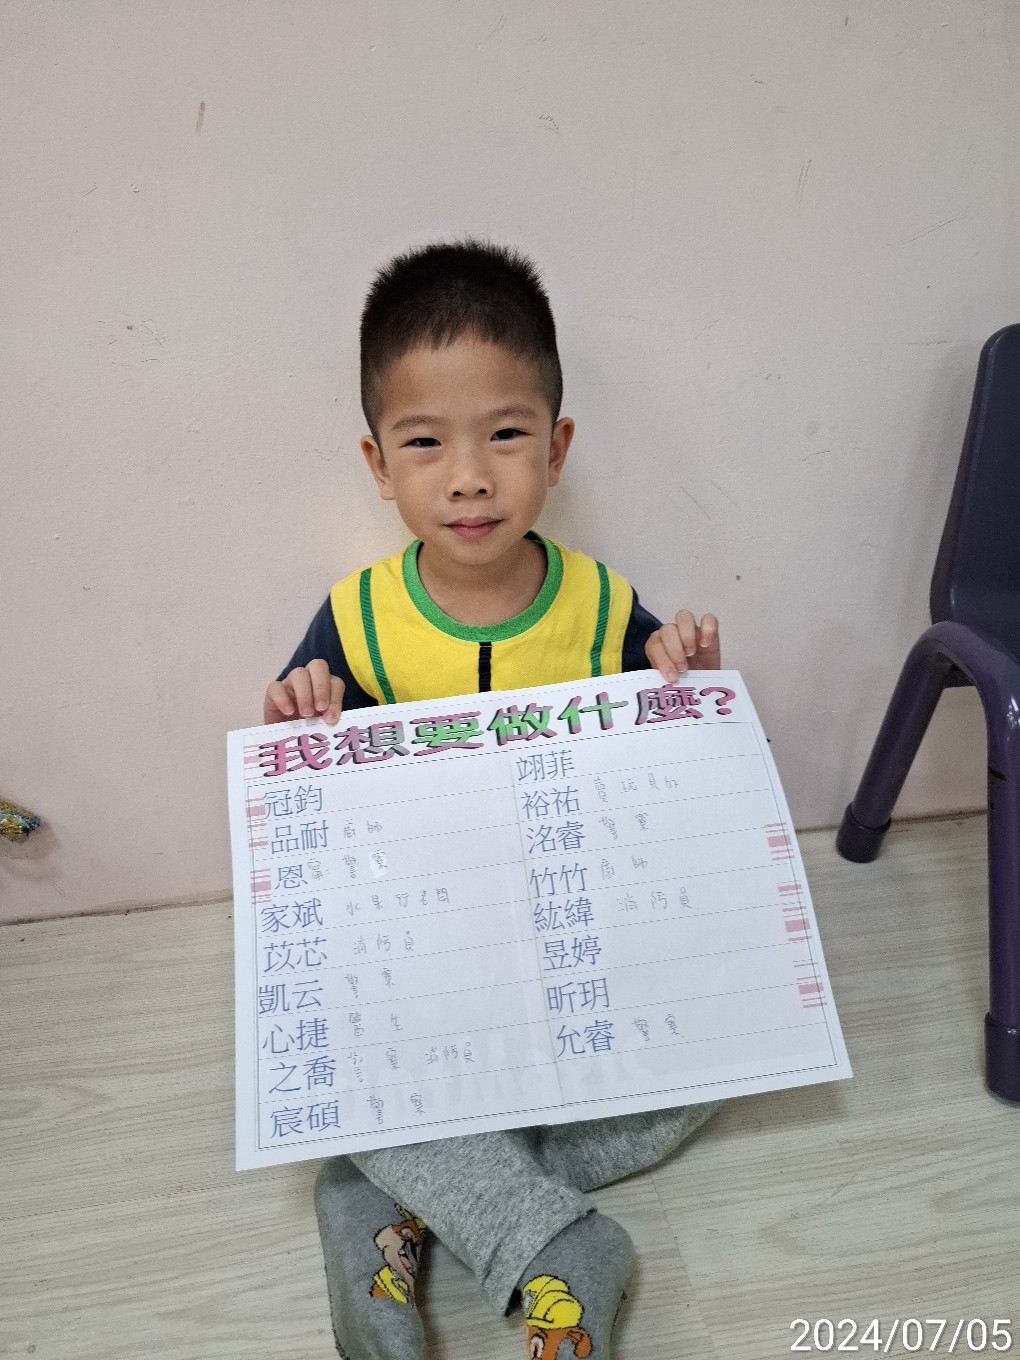 我想要做什麼?
冠鈞
品耐 廚師
恩 警察
家斌 水果行老闆
苡芯 消防員
凱云 警察
心捷 醫生
之喬 警察 消防員
宸碩 警察
翊菲
裕祐 賣玩具的
洺睿 警察
竹竹 廚師
紘緯 消防員
昱婷
昕玥
允睿 警察
2024/07/05